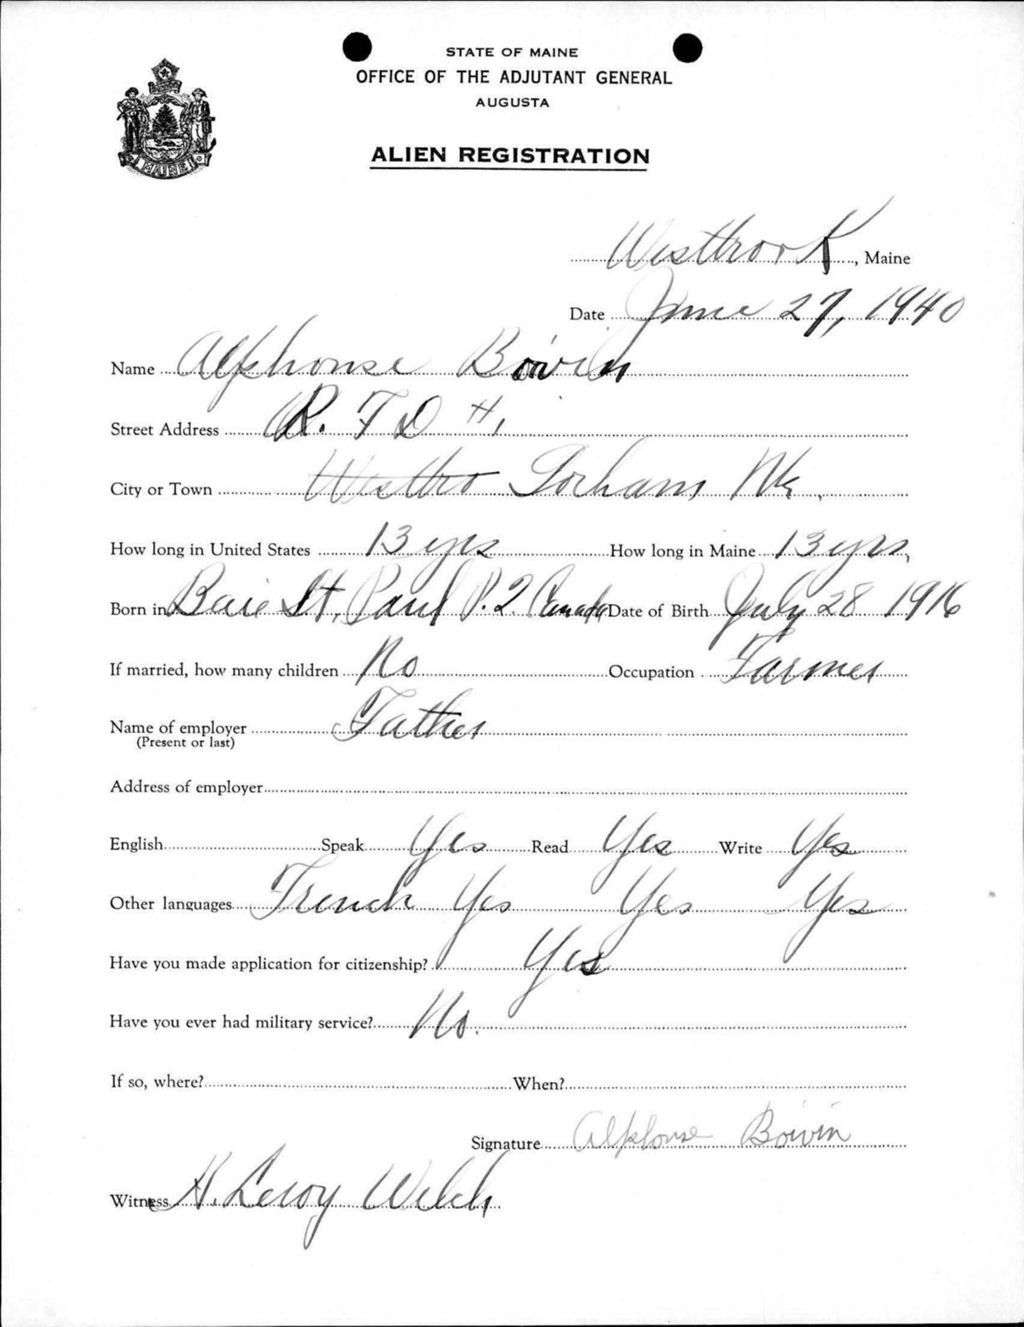 STATE OF MAINE
OFFICE OF THE ADJUTANT GENERAL
AUGUSTA
ALIEN REGISTRATION
MAINE
Westbrook, Maine
Date June 27, 1940
Name Alphonse Boivin
Street Address R. F D #1
City or Town Westbro Gorham Me.
How long in United States 13 yrs How long in Maine 13 yrs,
Born in Baie St. Paul P.Q. Canada Date of Birth July 28 1916
If married, how many children No Occupation Farmer
Name of employer Father
(Present or last)
Address of employer
English Speak Yes Read Yes Write Yes
Other languages French Yes Yes Yes
Have you made application for citizenship? Yes
Have you ever had military service? No.
If so, where? When?
Signature Alphonse Boivin
Witness H. Leroy Welch